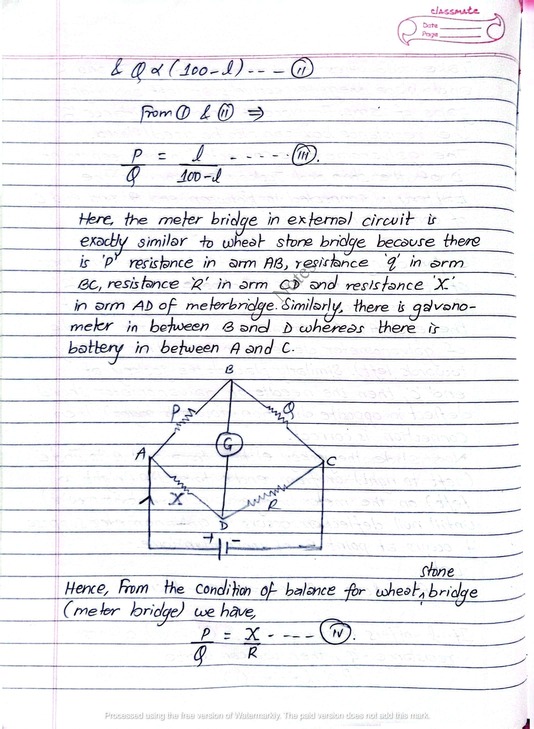 classmate
Date
Page
& Q ∝ (100-l) --- (II)
From (I) & (II) ⇒
P/Q = l/100-l ----- (III).
Here, the meter bridge in external circuit is
exactly similar to wheat stone bridge because there
is 'P' resistance in arm AB, resistance 'q' in arm
BC, resistance 'R' in arm CD and resistance 'X'
in arm AD of meterbridge. Similarly, there is galvano-
meter in between B and D whereas there is
battery in between A and C.
B
P
Q
G
A
C
X
R
D
+ -
Hence, From the condition of balance for wheat stone bridge
(meter bridge) we have,
P/Q = X/R ---- (IV).
Processed using the free version of Watermarkly. The paid version does not add this mark.